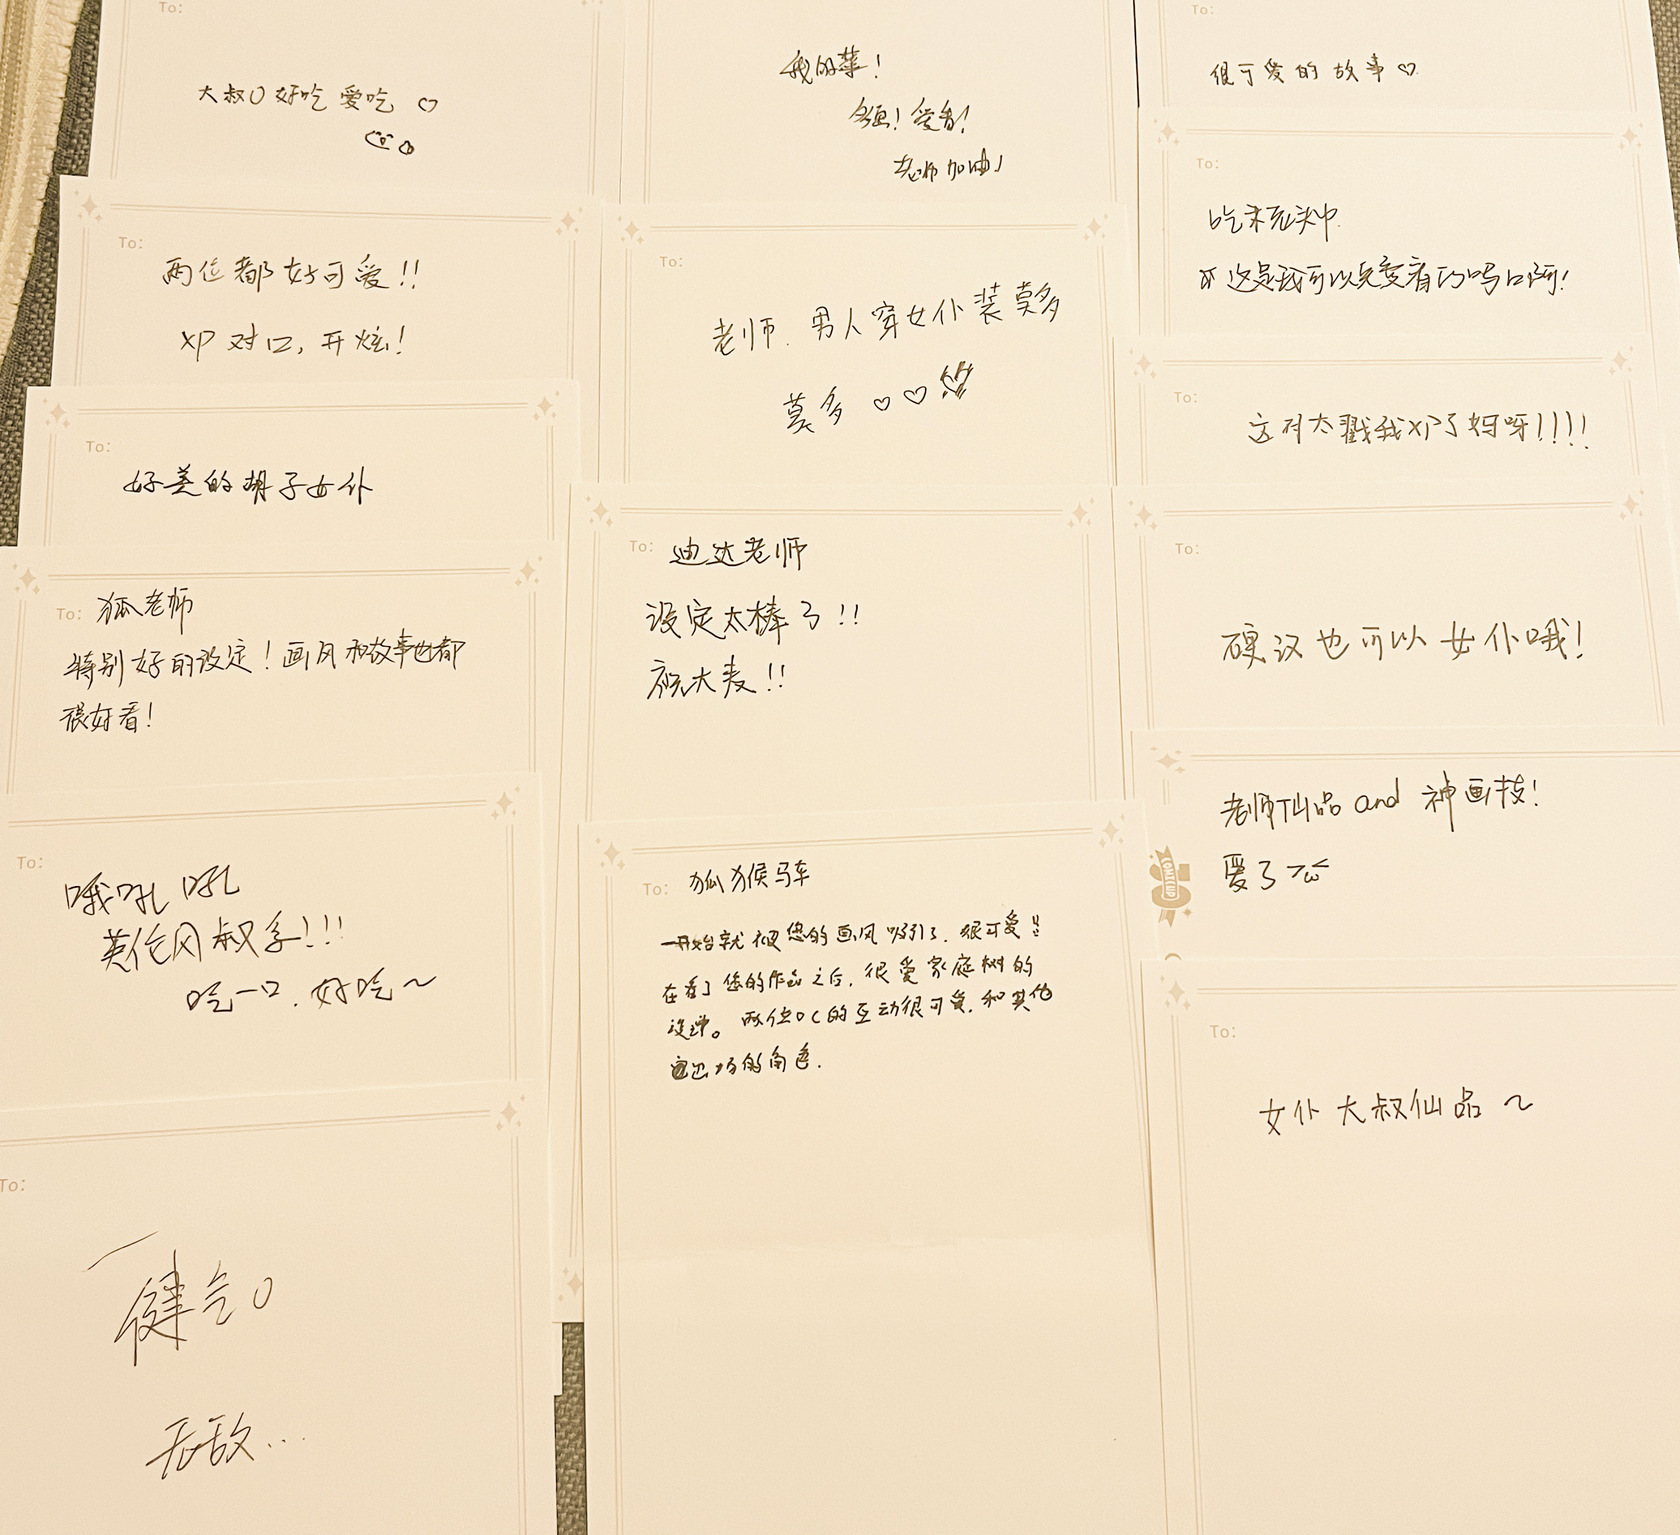 To:
大叔0好吃 爱吃 ♡
To:
两位都好可爱!!
XP对口, 开炫!
To:
好美的胡子女仆
To: 狐老师
特别好的设定!画风和故事也都
很好看!
To:
哦吼 吼
英伦风叔系!!!
吃一口, 好吃~
To:
健气0
无敌...
我的菜!
多画!爱看!
老师加油!
To:
老师. 男人穿女仆装莫多
莫多 ♡♡
To: 迪达老师
设定太棒了!!
祝大麦!!
To: 狐猴马车
一开始就被您的画风吸引了, 很可爱!!
在看了您的作品之后, 很爱家庭树的
设定。两位OC的互动很可爱, 和其他
出场的角色.
To:
很可爱的故事♡
To:
这是我可以免费看的吗啊!
To:
这对太戳我XP了妈呀!!!!
To:
硬汉也可以女仆哦!
老师仙品 and 神画技!
爱了
COMICUP
To:
女仆大叔仙品~